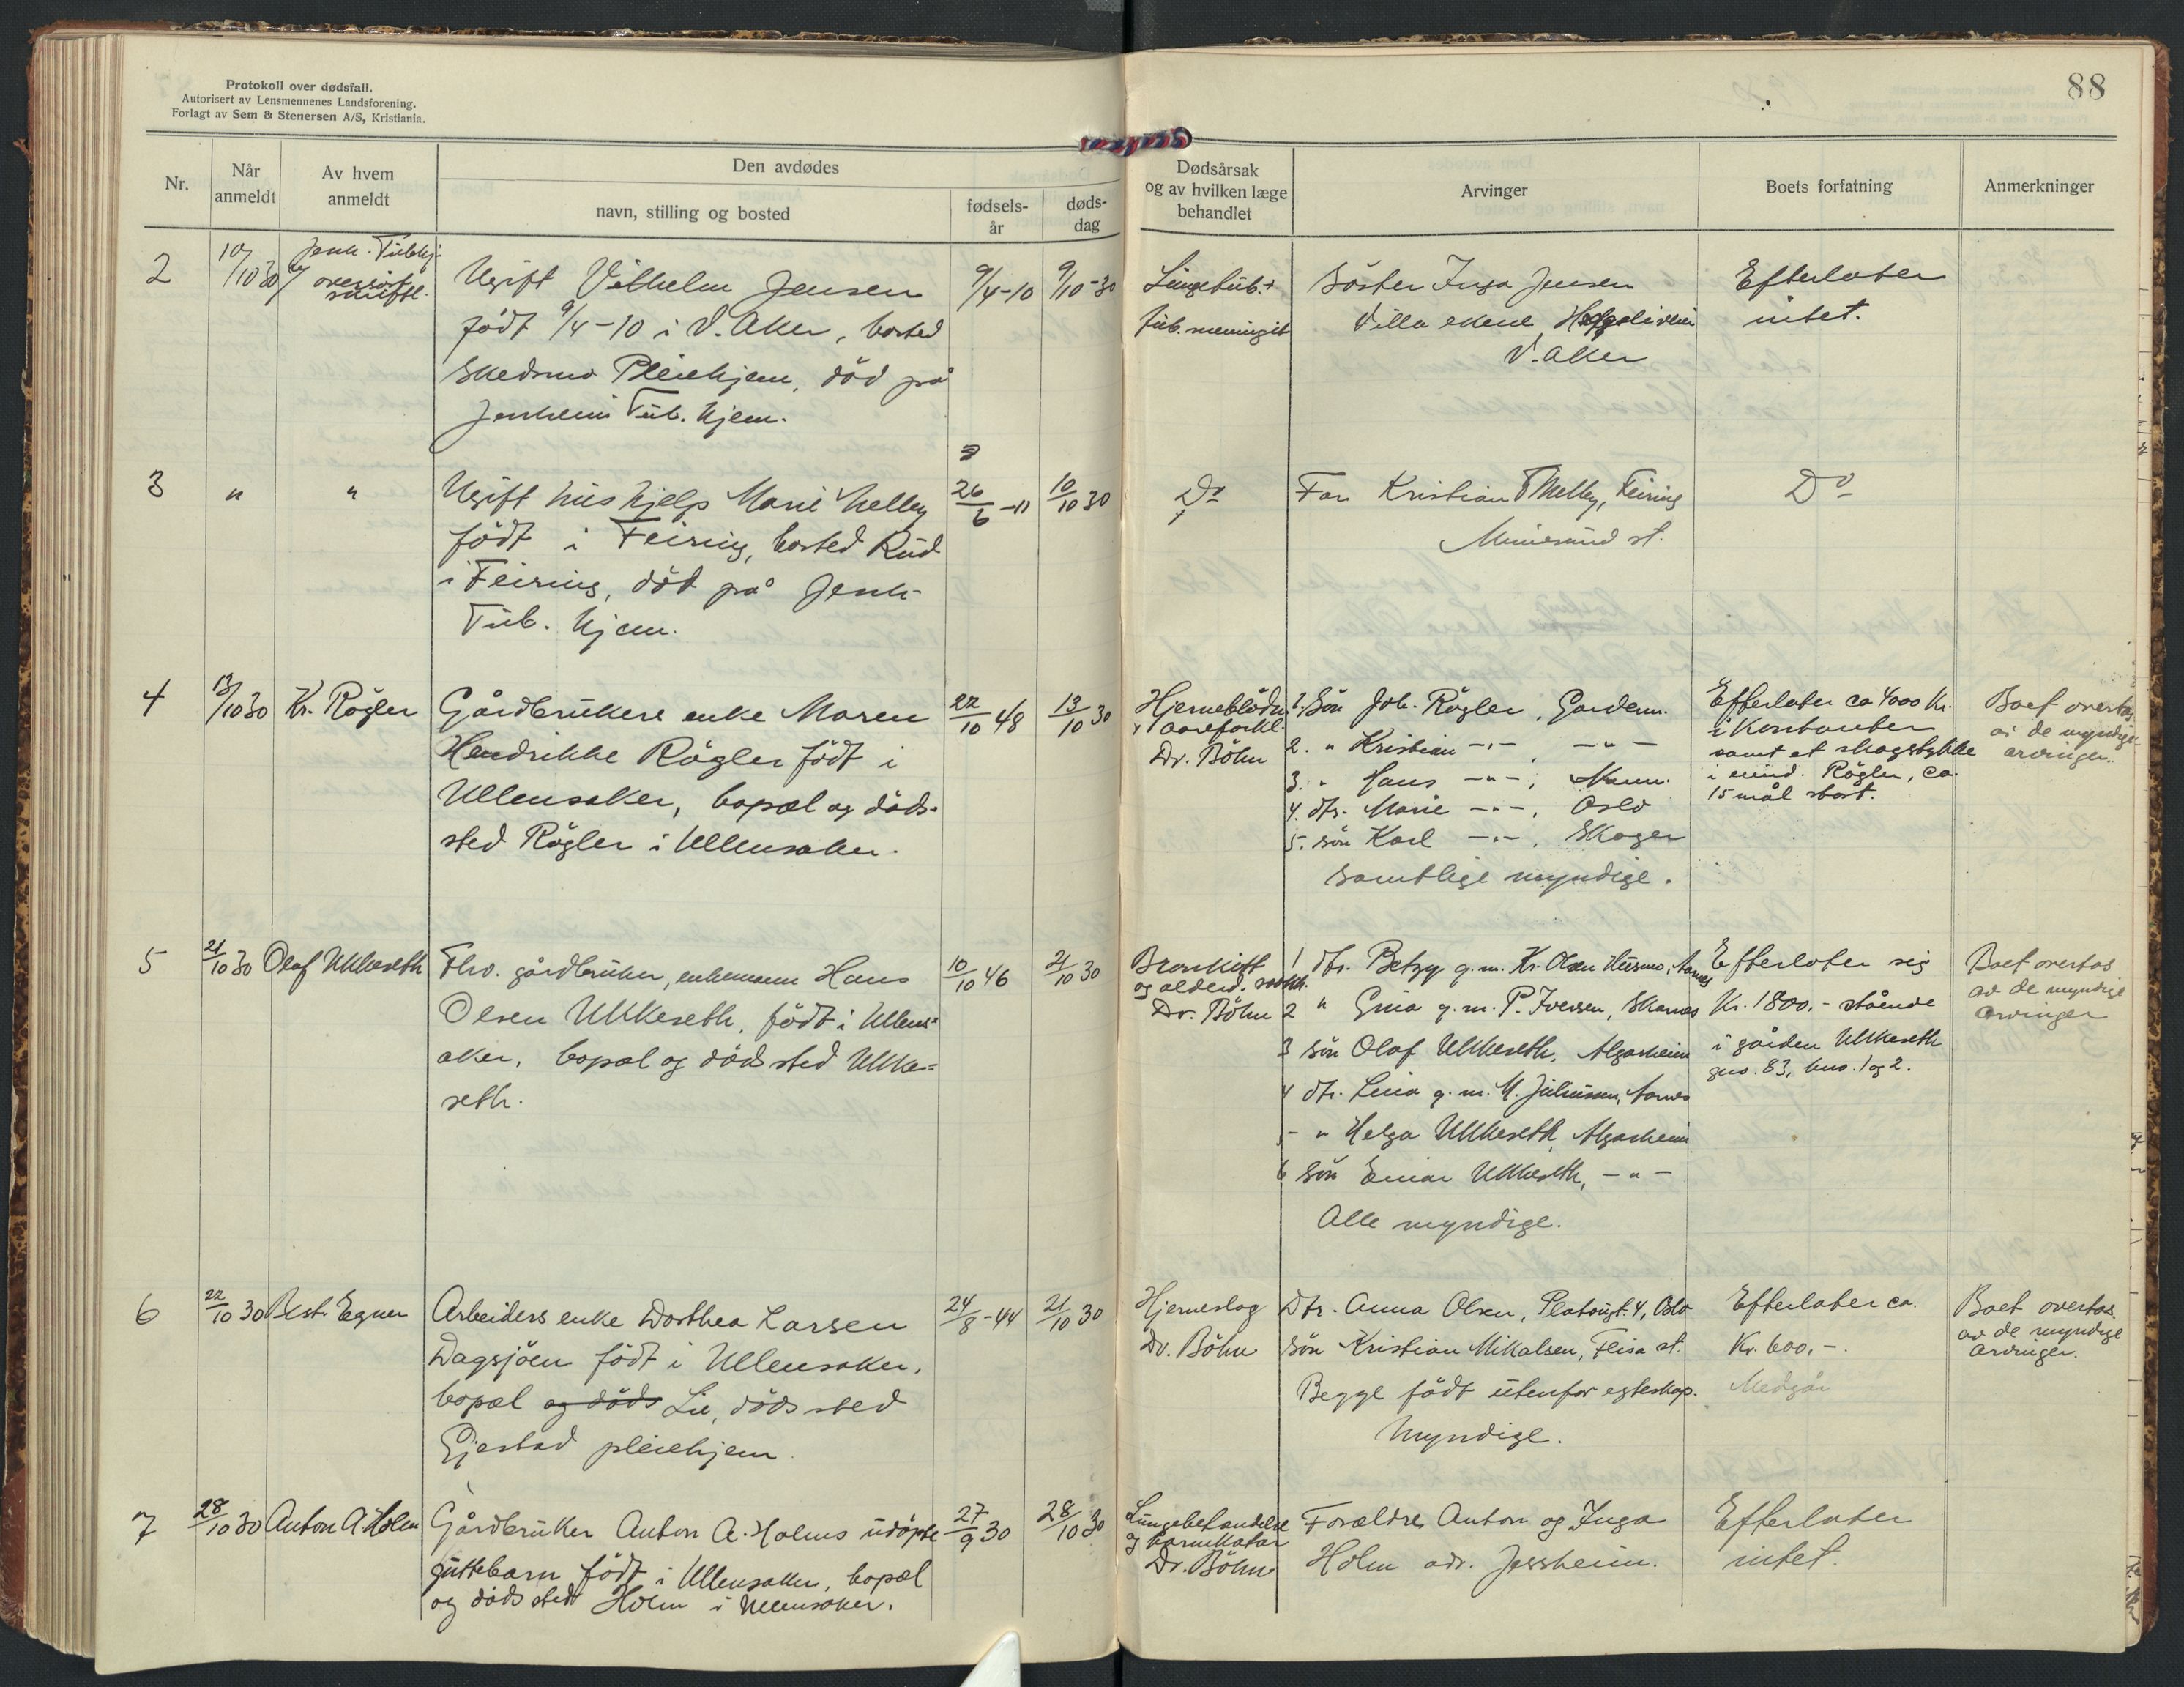 Protokoll over dødsfall.
Autorisert av Lensmennenes Landsforening.
Forlagt av Sem & Stenersen A/S, Kristiania.
88
Nr.
Når anmeldt
Av hvem anmeldt
Den avdødes
navn, stilling og bosted
fødsels-år
døds-dag
Dødsårsak og av hvilken læge behandlet
Arvinger
Boets forfatning
Anmerkninger
2
10/10 30
Jenh. Tubhj.
Ugift Vilhelm Jensen
født 9/4-10 i V. Aker, bosted
Skedsmo Pleiehjem, död på
Jenheim Tub. hjem.
9/4-10
9/10-30
Lungetub. +
tub. meningit
Söster Inga Jensen
Villa
V. Aker
Efterlater
intet.
3
"
"
Ugift hushjelp Marie Melby
født i Feiring, bosted Rud
i Feiring, död på Jenh.
Tub. hjem.
26/6 -11
10/10 30
Do
Far Kristian Melby, Feiring
Minnesund st.
Do
4
13/10 30
Kr. Rögler
Gårdbrukers enke Maren
Hendrikke Rögler født i
Ullensaker, bopæl og döds-
sted Rögler i Ullensaker.
22/10 48
13/10 30
Hjerneblödn.
+ aareforkl.
Dr. Böhn
1. Sön Joh. Rögler, Garderm.
2. " Kristian -"- , -"-
3. " Hans -"- ,
4. dtr. Marie -"- , Oslo
5. sön Karl -"- , Skoger
Samtlige myndige.
Efterlater ca 4000 Kr.
i kontanter
samt et skogstykke
i eiend. Rögler, ca.
15 mål stort.
Boet overtas
av de myndige
arvinger.
5
21/10 30
Olaf Ukkeseth
Fhv. gårdbruker, enkemann Hans
Olsen Ukkeseth, født i Ullens=
aker, bopæl og dödssted Ukke=
seth.
10/10 46
21/10 30
Bronkitt
og alderd.
Dr. Böhn
1 dtr. Betzy g.m. Kr. Olsen Husmo, Aarnes
2 " Gina g.m. P. Iversen, Skarnes
3 sön Olaf Ukkeseth, Algarheim
4 dtr. Lina g.m. M. Juliussen, Aarnes
5 " Helga Ukkeseth, Algarheim
6 sön Einar Ukkeseth, -"-
Alle myndige.
Efterlater sig
Kr. 1800.- stående
i gården Ukkeseth
gno. 83, bno. 1 og 2.
Boet overtas
av de myndige
arvinger
6
22/10 30
Best. Egner
Arbeiders enke Dorthea Larsen
Dagsjöen født i Ullensaker,
bopæl og döds Lie, dödssted
Gjestad pleiehjem.
24/8-44
21/10 30
Hjerneslag
Dr. Böhn
Dtr. Anna Olsen, Platousgt. 4, Oslo
sön Kristian Mikalsen, Flisa st.
Begge født utenfor egteskap.
Myndige.
Efterlater ca.
Kr. 600.-.
Medgår
Boet overtas
av de myndige
arvinger.
7
28/10 30
Anton A Holm
Gårdbruker Anton A. Holms udöpte
guttebarn født i Ullensaker, bopæl
og dödssted Holm i Ullensaker.
27/9 30
28/10 30
Lungebetendelse
og tarmkatar
Dr. Böhn
Forældre Anton og Inga
Holm adr. Jessheim.
Efterlater
intet.